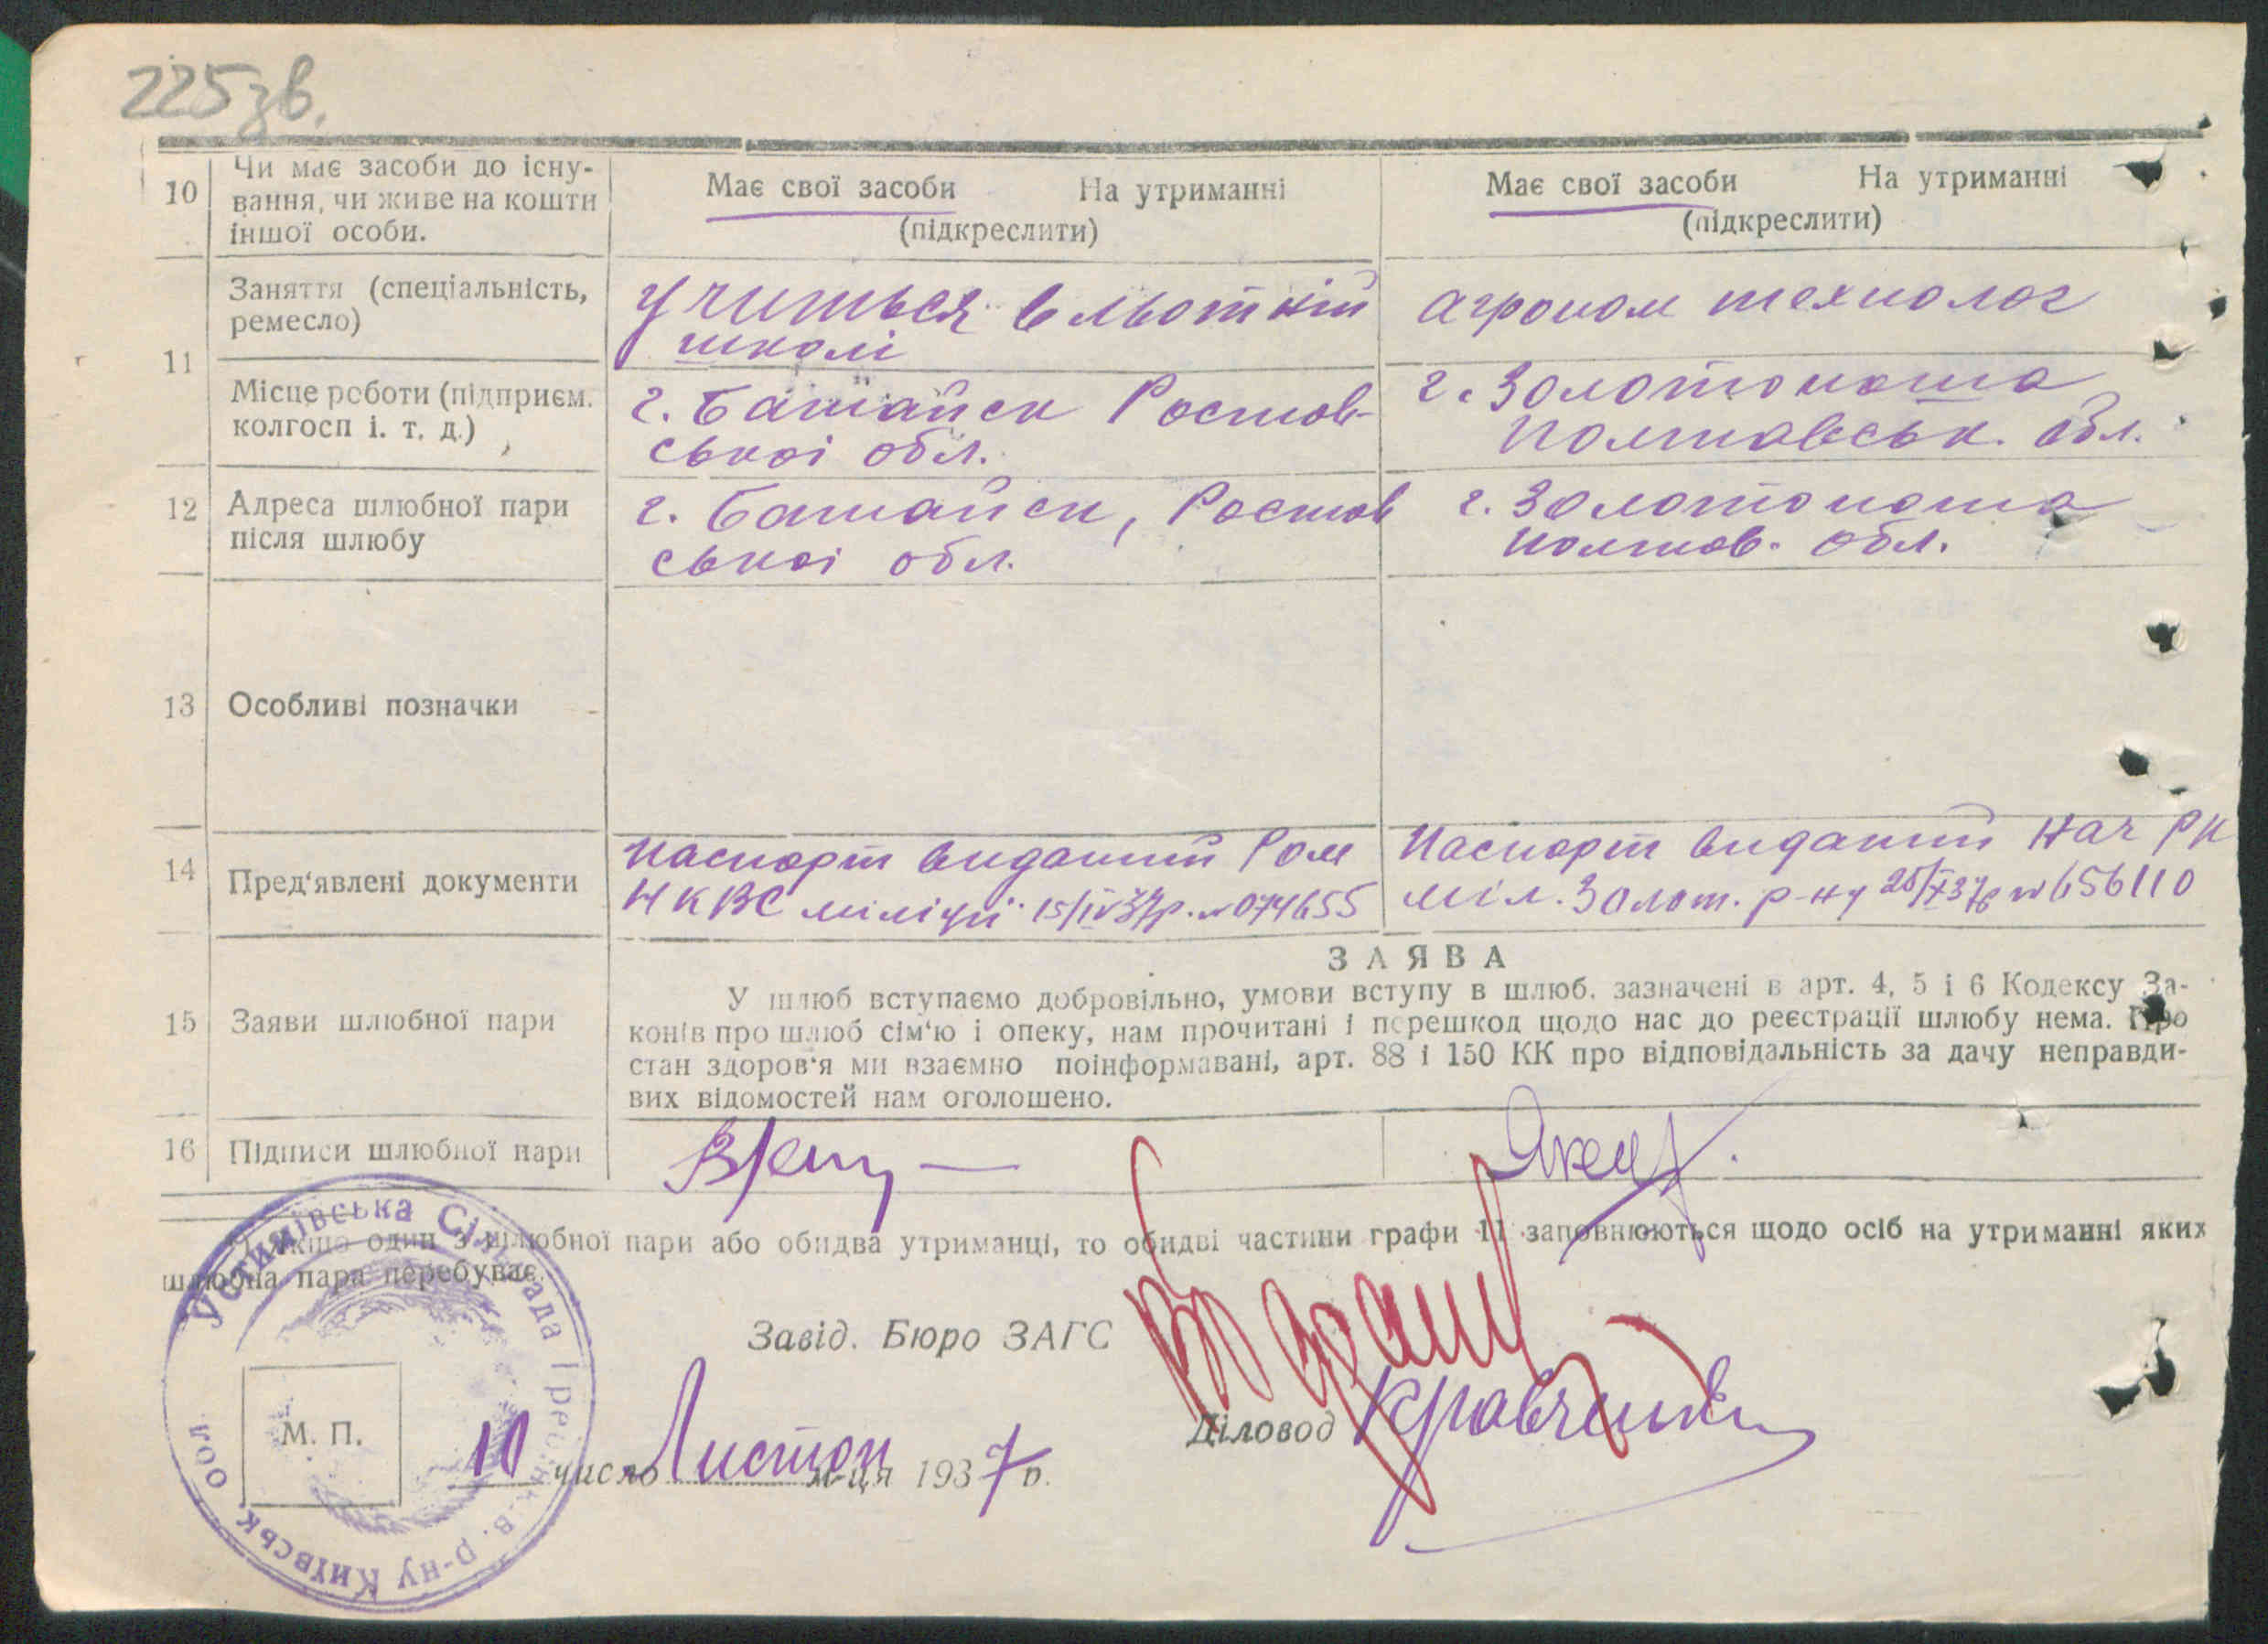 225 зв.
10 Чи має засоби до існу- Має свої засоби На утриманні Має свої засоби На утриманні
вання, чи живе на кошти (підкреслити) (підкреслити)
іншої особи.
11 Заняття (спеціальність, учиться в льотній агроном технолог
ремесло) школі
Місце роботи (підприєм. г. Батайск Ростов- г. Золотоноша
колгосп і. т. д.) ської обл. Полтавськ. обл.
12 Адреса шлюбної пари г. Батайск, Ростов г. Золотоноша
після шлюбу ської обл. Полтов. обл.
13 Особливі позначки
14 Пред'явлені документи Паспорт виданий Ром Паспорт виданий Нач РК
НКВС міліції 15/IV 37р. № 074655 міл. Золот. р-ну 25/X 37р № 656110
ЗАЯВА
15 Заяви шлюбної пари У шлюб вступаємо добровільно, умови вступу в шлюб. зазначені в арт. 4, 5 і 6 Кодексу За-
конів про шлюб сім'ю і опеку, нам прочитані і перешкод щодо нас до реєстрації шлюбу нема. Про
стан здоров'я ми взаємно поінформавані, арт. 88 і 150 КК про відповідальність за дачу неправди-
вих відомостей нам оголошено.
16 Підписи шлюбної пари
Якщо один з шлюбної пари або обидва утриманці, то обидві частини графи 11 заповнюються щодо осіб на утриманні яких
шлюбна пара перебуває.
Устимівська Сільрада р-ну Київськ обл.
Завід. Бюро ЗАГС
М. П.
Діловод Кравченко
10 число Листоп м-ця 1937 р.